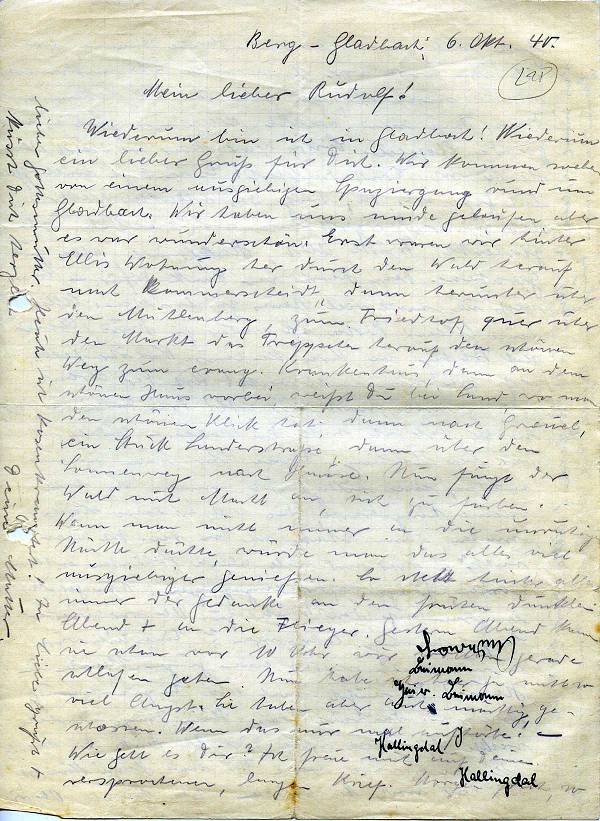 Berg-Gladbach, 6. Okt. 40.
Mein lieber Rudolf!
Wiederum bin ich in Gladbach! Wiederum
ein lieber Gruß für Dich. Wir kommen soeben
von einem ausgiebigen Spaziergang rund um
Gladbach. Wir haben uns müde gelaufen aber
es war wunderschön. Erst waren wir hinter
Ellis Wohnung her durch den Wald herauf
nach Kommerscheidt, dann herunter über
den Mühlenberg, zum Friedhof, quer über
den Markt das Treppchen herauf den schönen
Weg zum evang. Krankenhaus, dann an dem
schönen Haus vorbei weißt Du bei Sand wo man
den schönen Blick hat, dann nach
ein Stück Sanderstraße, dann über den
Sonnenweg nach Hause. Nun fängt der
Wald mit Macht an, sich zu färben.
Wenn man nicht immer an die unruhigen
Nächte dächte, würde man das alles viel
ausgiebiger genießen. So steht hinter allem
immer der Gedanke an den frühen dunklen
Abend + an die Flieger. Gestern Abend kamen
sie schon vor 10 Uhr wir gerade
schlafen gehen. Nun habe ich ja nicht so
viel Angst. Sie haben aber auch mächtig ge-
schossen. Wenn das nur mal aufhörte! –
Wie geht es Dir? Ich freue mich auf Deinen
versprochenen, langen Brief.
Beimann
Beimann
Hallingdal
Hallingdal
liebe Gottesmutter, heute ist Rosenkranzfest! In Liebe grüßt +
küsst Dich herzlich
Deine Mutter